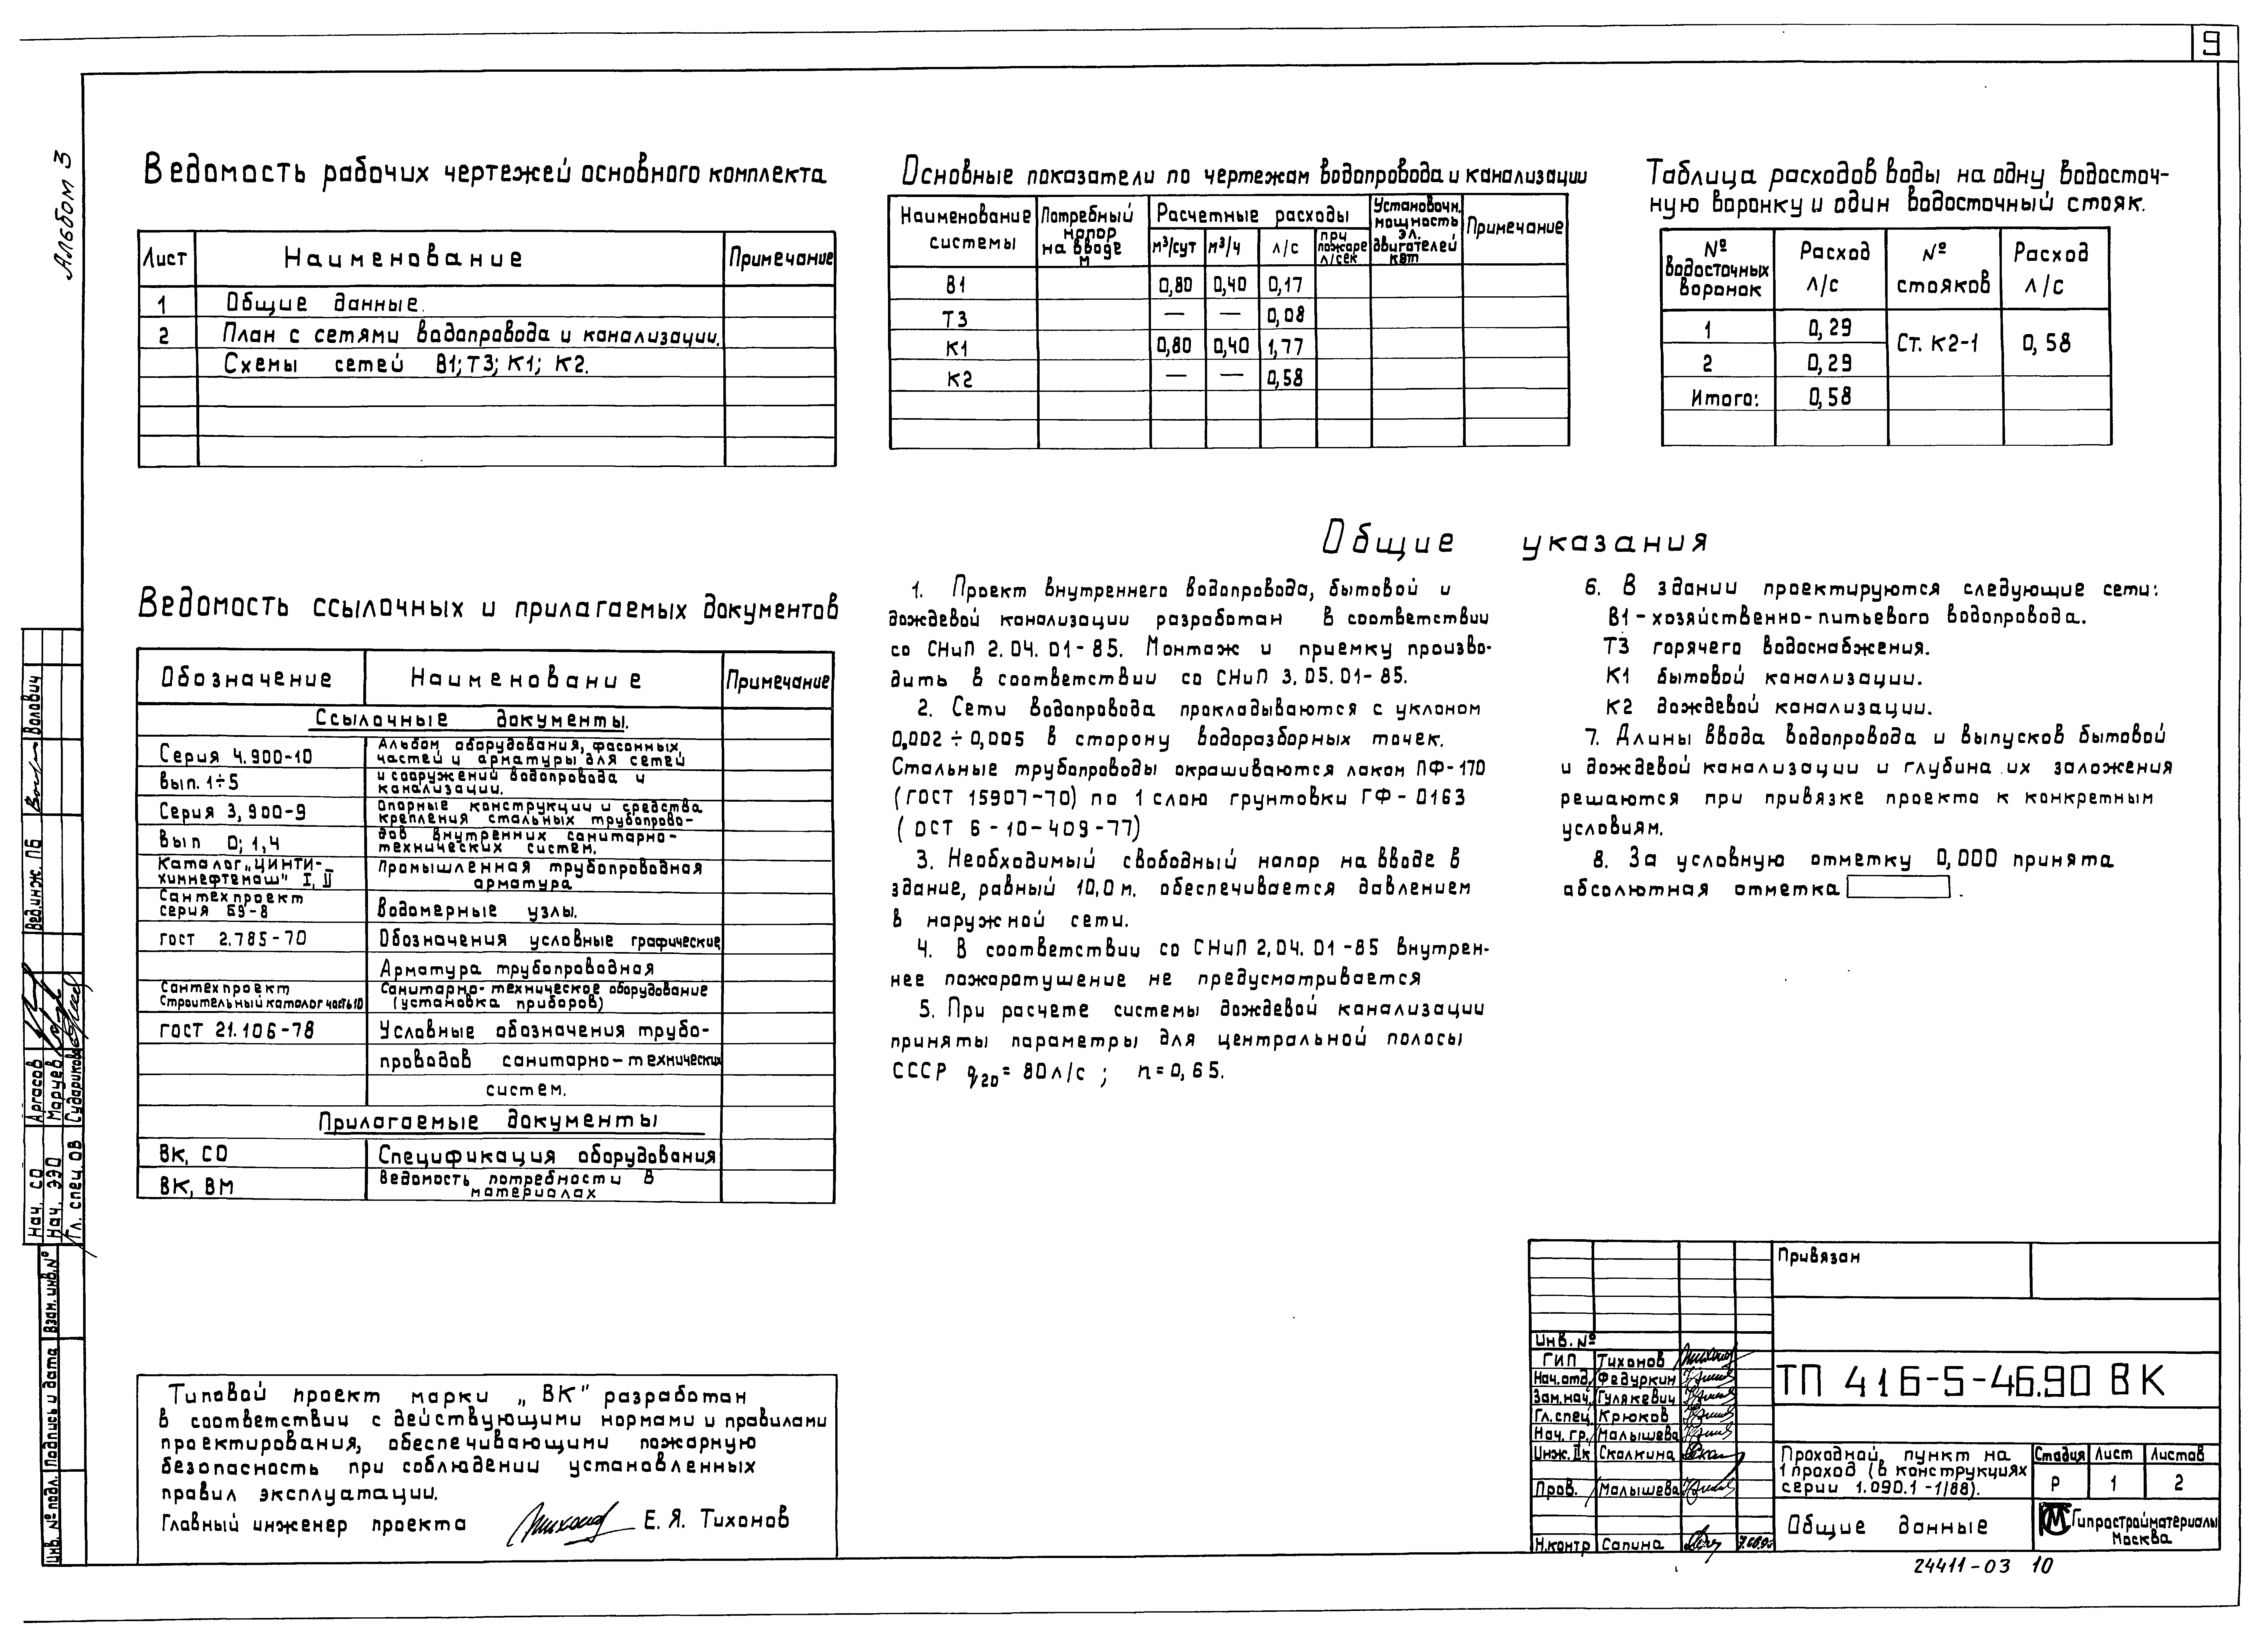 9
Альбом 3
Ведомость рабочих чертежей основного комплекта
Лист Наименование Примечание
1 Общие данные.
2 План с сетями водопровода и канализации.
Схемы сетей В1; Т3; К1; К2.
Основные показатели по чертежам водопровода и канализации
Наименование системы
Потребный напор на вводе м
Расчетные расходы
м³/сут м³/ч л/с при пожаре л/сек
Установочн. мощность эл. двигателей квт
Примечание
В1 0,80 0,40 0,17
Т3 — — 0,08
К1 0,80 0,40 1,77
К2 — — 0,58
Таблица расходов воды на одну водосточ-
ную воронку и один водосточный стояк.
№ водосточных воронок
Расход л/с
№ стояков
Расход л/с
1 0,29 Ст. К2-1 0,58
2 0,29
Итого: 0,58
Ведомость ссылочных и прилагаемых документов
Обозначение Наименование Примечание
Ссылочные документы.
Серия 4.900-10 Альбом оборудования, фасонных частей и арматуры для сетей
вып. 1÷5 и сооружений водопровода и канализации.
Серия 3,900-9 Опорные конструкции и средства крепления стальных трубопрово-
вып 0; 1,4 дов внутренних санитарно-технических систем.
Каталог „ЦИНТИ-
химнефтемаш" I, II Промышленная трубопроводная арматура
Сантехпроект
серия Б9-8 Водомерные узлы.
гост 2.785-70 Обозначения условные графические
Арматура трубопроводная
Сантехпроект Санитарно-техническое оборудование
Строительный каталог часть 10 (установка приборов)
ГОСТ 21.106-78 Условные обозначения трубо-
проводов санитарно-технических
систем.
Прилагаемые документы
ВК, СО Спецификация оборудования
ВК, ВМ Ведомость потребности в материалах
Общие указания
1. Проект внутреннего водопровода, бытовой и
дождевой канализации разработан в соответствии
со СНиП 2.04.01-85. Монтаж и приемку произво-
дить в соответствии со СНиП 3.05.01-85.
2. Сети водопровода прокладываются с уклоном
0,002÷0,005 в сторону водоразборных точек.
Стальные трубопроводы окрашиваются лаком ПФ-170
(ГОСТ 15907-70) по 1 слою грунтовки ГФ-0163
(ОСТ 6-10-409-77)
3. Необходимый свободный напор на вводе в
здание, равный 10,0м. обеспечивается давлением
в наружной сети.
4. В соответствии со СНиП 2,04.01-85 внутрен-
нее пожаротушение не предусматривается
5. При расчете системы дождевой канализации
приняты параметры для центральной полосы
СССР q20=80л/с; n=0,65.
6. В здании проектируются следующие сети:
В1-хозяйственно-питьевого водопровода.
Т3 горячего водоснабжения.
К1 бытовой канализации.
К2 дождевой канализации.
7. Длины ввода водопровода и выпусков бытовой
и дождевой канализации и глубина их заложения
решаются при привязке проекта к конкретным
условиям.
8. За условную отметку 0,000 принята
абсолютная отметка .
Типовой проект марки „ВК" разработан
в соответствии с действующими нормами и правилами
проектирования, обеспечивающими пожарную
безопасность при соблюдении установленных
правил эксплуатации.
Главный инженер проекта Е. Я. Тихонов
Вед. инж. ПБ Валович
Нач. СО Аргасов
Нач. ЭЭО Маруев
Гл. спец. ОВ Сударикова
Взам. инв. №
Подпись и дата
Инв. № подл.
Привязан
Инв. №
ГИП Тихонов
Нач. отд. Федуркин
Зам. нач. Гулякевич
Гл. спец. Крюков
Нач. гр. Малышева
Инж. IIк Скалкина
Пров. Малышева
Н.контр Сапина
ТП 416-5-46.90 ВК
Проходной пункт на
1 проход (в конструкциях
серии 1.090.1-1/88).
Стадия Лист Листов
Р 1 2
Общие данные
Гипростройматериалы
Москва
24411-03 10